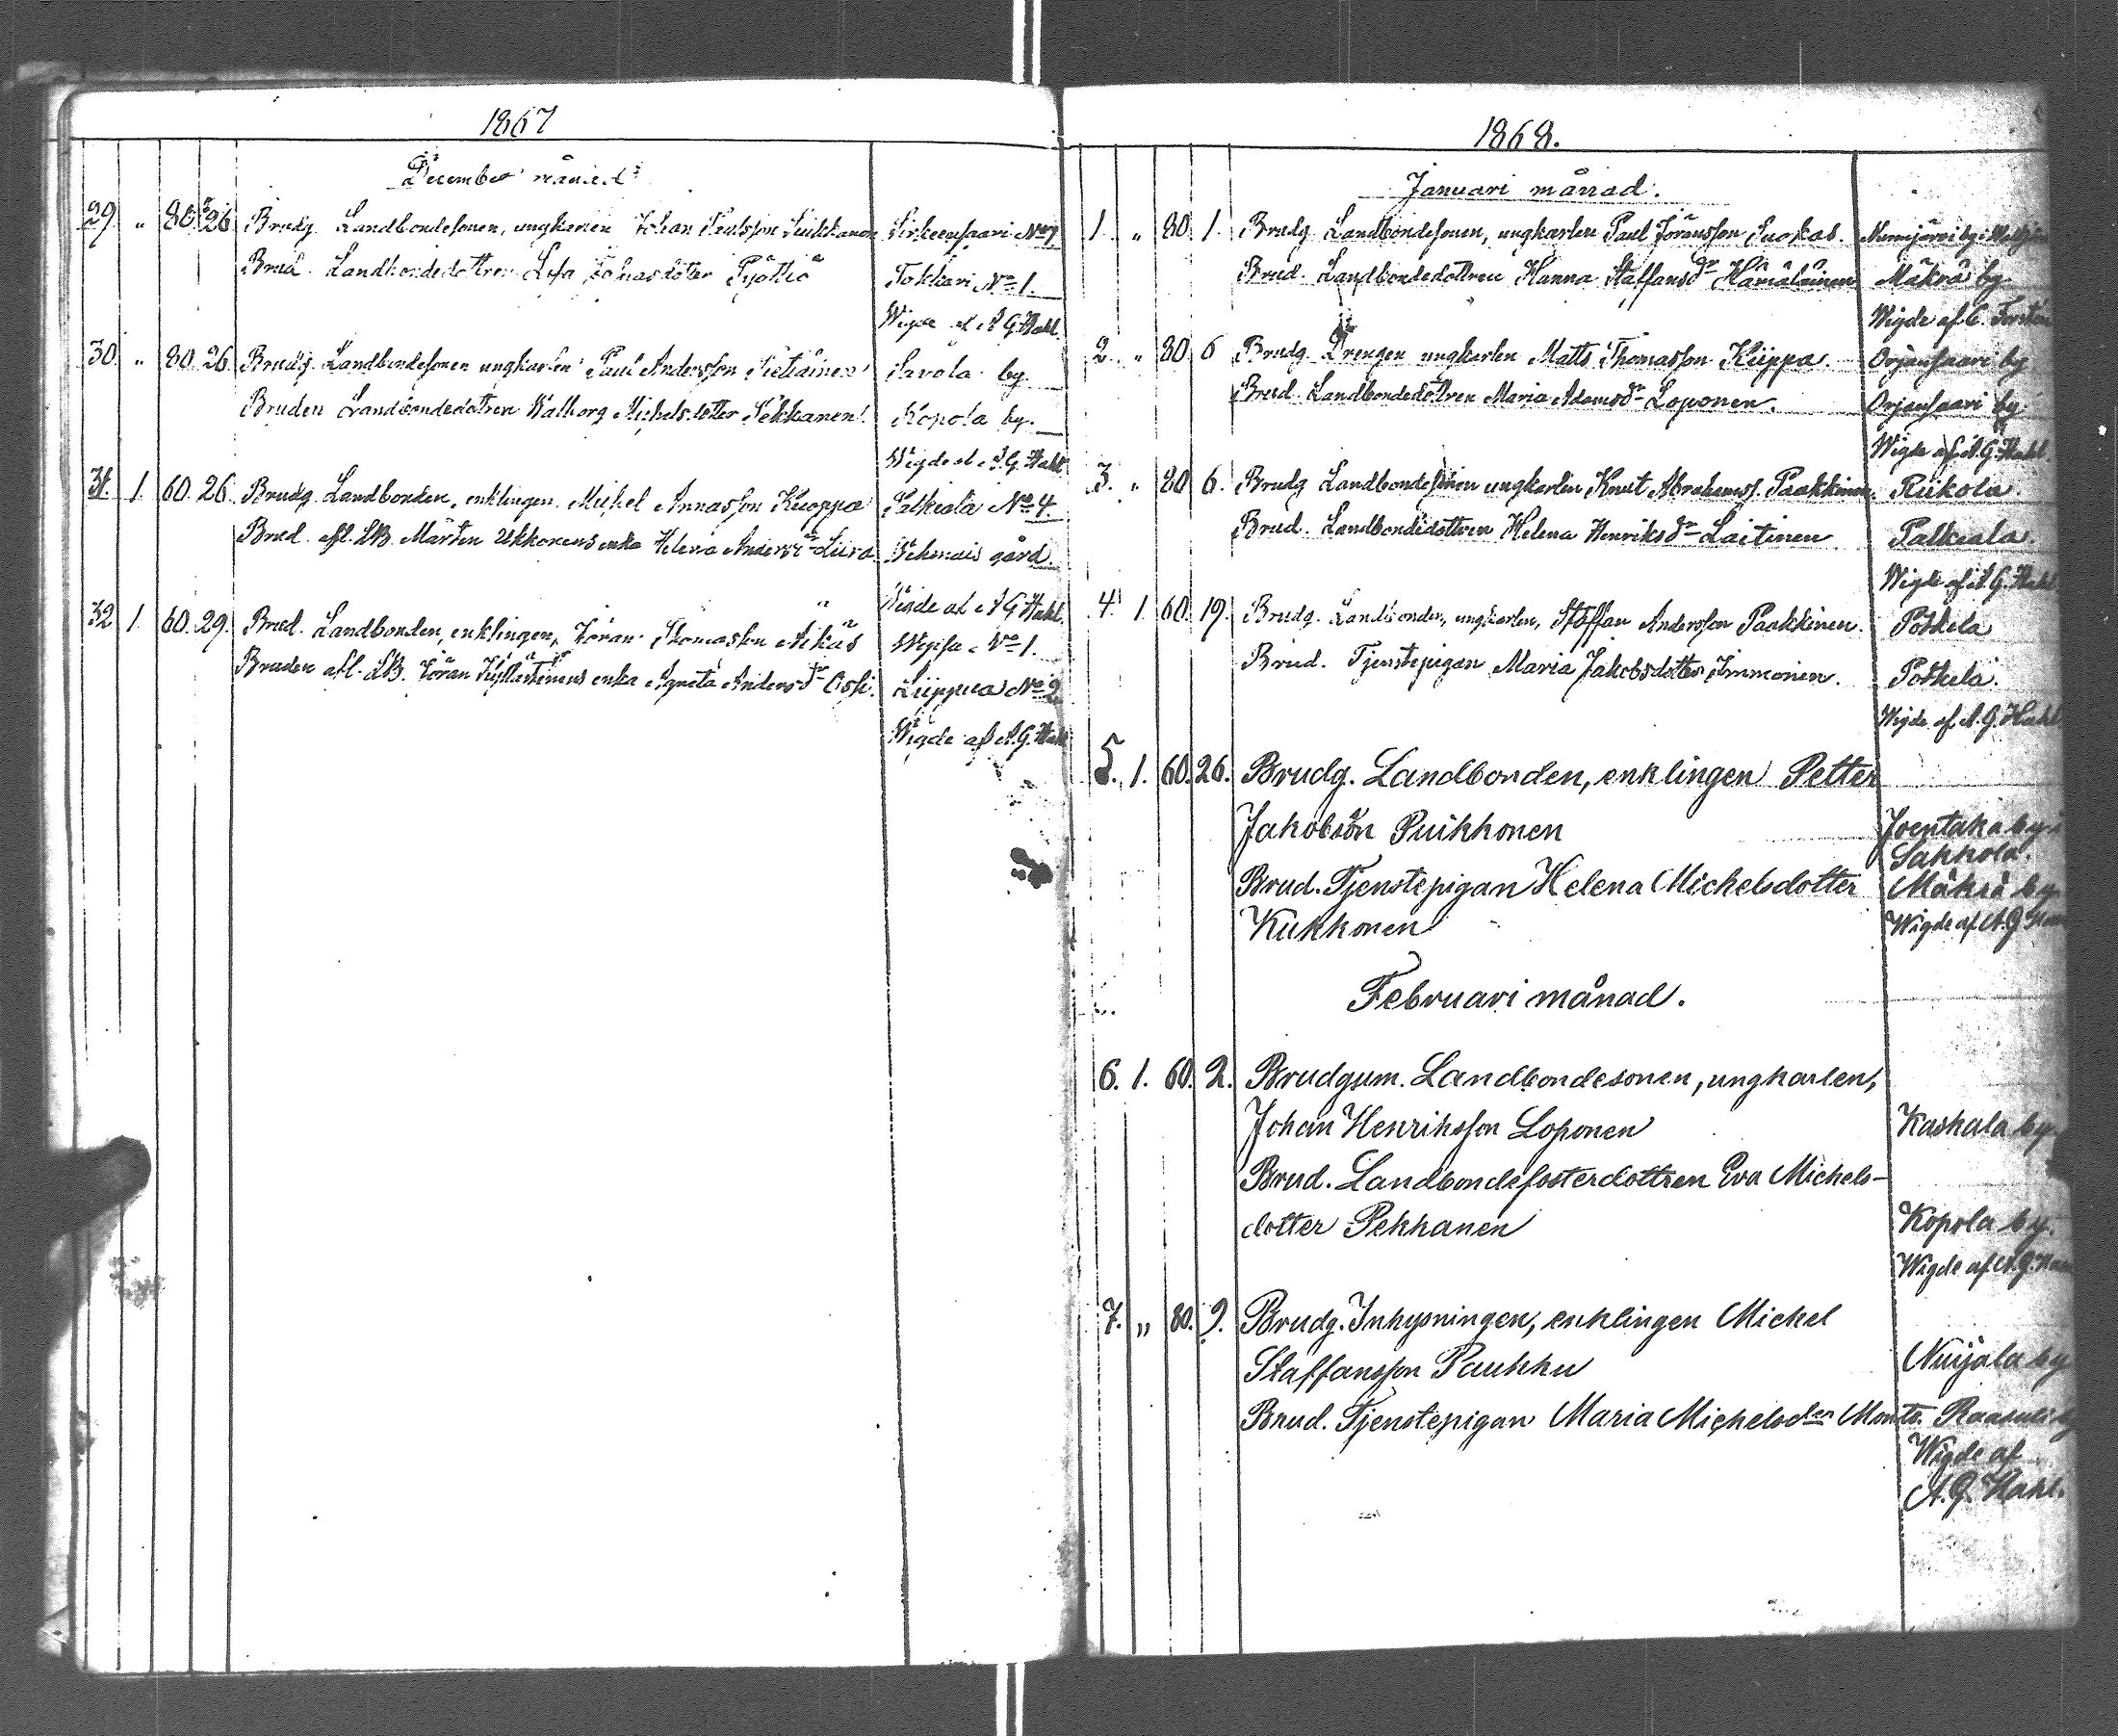 1867
December månad
29. " 80. 26 Brudg. Landbondesonen, ungkarlen Johan Paulsson Liukkanen Sirkeensaari No 7
Brud. Landbondedottren Lisa Johansdotter Pyöttiö Tokkari No 1.
Wigde af A G Hahl.
30. " 80. 26 Brudg. Landbondesonen ungkarlen Paul Andersson Pietiäinen Savola by.
Bruden Landbondedottren Walborg Michelsdotter Pekkanen. Kopola by.
Wigde af A. G. Hahl
31. 1. 60. 26. Brudg. Landbonden, enklingen Mickel Knuoppa Palkeala No 4.
Brud. afl. LB. Mårten Ukkonens enka Helena Anders dr Liira gård.
Wigde af A G Hahl
32 1. 60. 29. Brud. Landbonden, enklingen, Jöran Thomasson Aikäs No 1.
Bruden afl. LB. Jöran enka Agneta Anders dr Liippua No 2
Wigde af A. G. Hahl
1868.
Januari månad.
1. " 80. 1. Brudg. Landbondesonen, ungkarlen Paul Jöransson Suokas. by i
Brud. Landbondedottren Hanna Staffans dr Mäkrä by
Wigde af C. Forstén
2. " 80 6 Brudg. Drengen ungkarlen Matts Thomasson Kiippa. Orjansaari by
Brud. Landbondedottren Maria Adams dr Loponen. Orjansaari by
Wigde af A. G. Hahl.
3. " 80 6. Brudg Landbondesonen ungkarlen Knut Abrahamss. Paakkinen. Riikola.
Brud. Landbondedottren Helena Henriks dr Laitinen Palkeala.
Wigde af A. G. Hahl
4. 1 60. 19. Brudg. Landbonden, ungkarlen, Staffan Andersson Paakkinen. Pötkelä
Brud. Tjenstepigan Maria Jakobsdotter Immonen. Pötkelä.
Wigde af A. G. Hahl
5. 1. 60. 26. Brudg. Landbonden, enklingen Petter
Jakobson Puikkonen Joentaka by i
Sakkola.
Brud. Tjenstepigan Helena Michelsdotter Mäkrä by
Kukkonen Wigde af A. G
Februari månad.
6. 1. 60. 2. Brudgum. Landbondesonen, ungkarlen,
Johan Henriksson Loponen Kaskala by
Brud. Landbondefosterdottren Eva Michels-
dotter Pekkanen Kopola by.
Wigde af A. G.
7. " 80. 9. Brudg. Inhysningen, enklingen Mickel
Staffansson Paukku Nuijala by
Brud. Tjenstepigan Maria Michelsdr Monto. Raasuli by
Wigde af
A. G. Hahl.